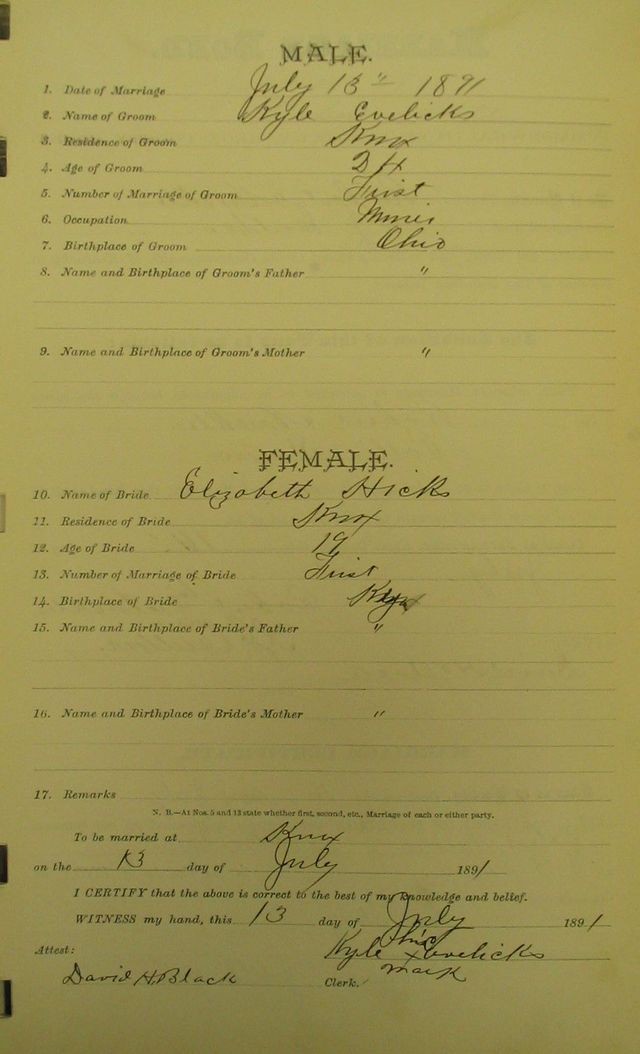 MALE.
1. Date of Marriage July 13" 1891
2. Name of Groom Kyle Evelicks
3. Residence of Groom Knox
4. Age of Groom 24
5. Number of Marriage of Groom First
6. Occupation Miner
7. Birthplace of Groom Ohio
8. Name and Birthplace of Groom's Father "
9. Name and Birthplace of Groom's Mother "
FEMALE.
10. Name of Bride Elizabeth Hicks
11. Residence of Bride Knox
12. Age of Bride 19
13. Number of Marriage of Bride First
14. Birthplace of Bride
15. Name and Birthplace of Bride's Father "
16. Name and Birthplace of Bride's Mother "
17. Remarks
N. B.—At Nos. 5 and 13 state whether first, second, etc., Marriage of each or either party.
To be married at Knox
on the 13 day of July 1891
I CERTIFY that the above is correct to the best of my knowledge and belief.
WITNESS my hand, this 13 day of July 1891
his
Attest: Kyle x Evelicks
mark
David H. Black Clerk.